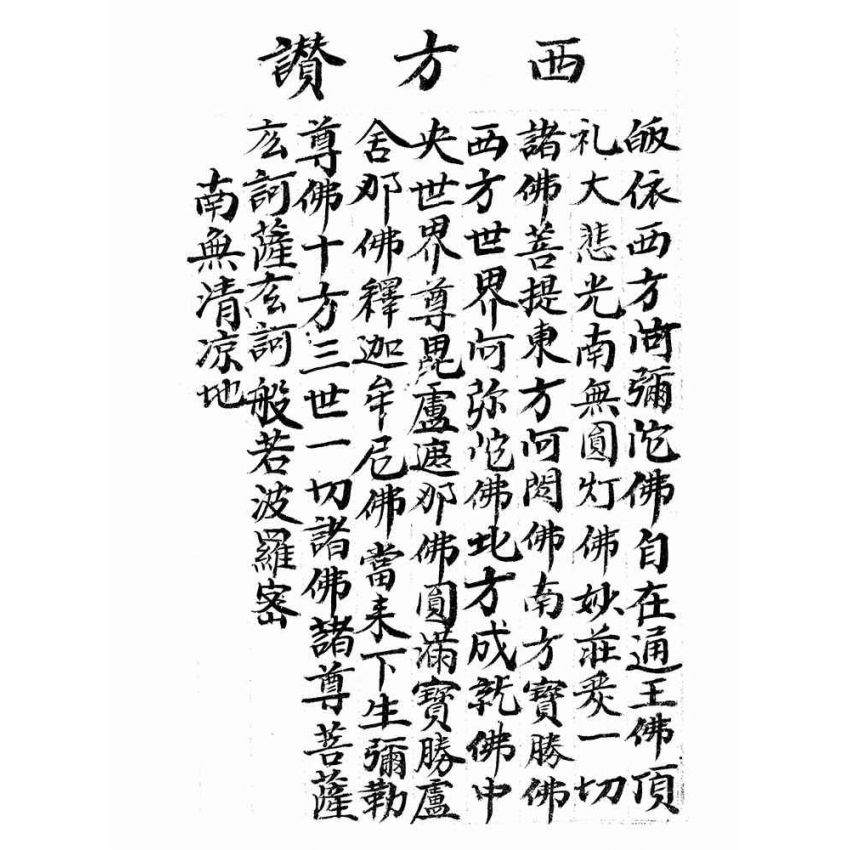 西方讚
皈依西方阿彌陀佛自在通王佛頂
礼大悲光南無圓灯佛妙莊嚴一切
諸佛菩提東方阿閦佛南方寶勝佛
西方世界阿弥陀佛北方成就佛中
央世界尊毘盧遮那佛圓滿寶勝盧
舍那佛釋迦牟尼佛當来下生彌勒
尊佛十方三世一切諸佛諸尊菩薩
庅訶薩庅訶般若波羅密
南無清凉地